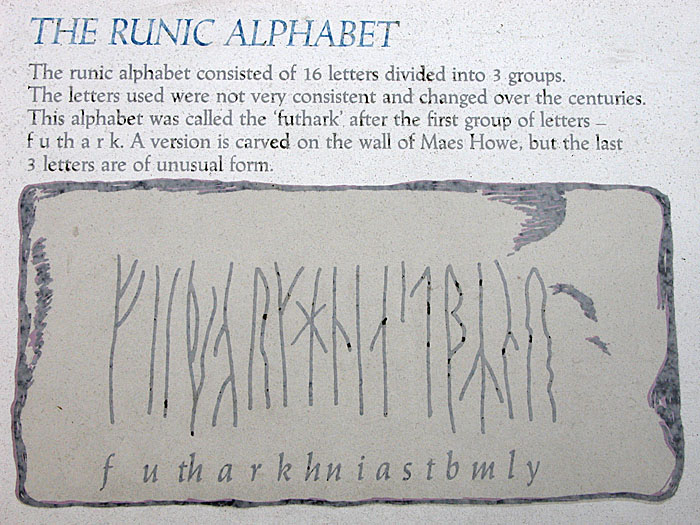 THE RUNIC ALPHABET
The runic alphabet consisted of 16 letters divided into 3 groups.
The letters used were not very consistent and changed over the centuries.
This alphabet was called the 'futhark' after the first group of letters –
f u th a r k. A version is carved on the wall of Maes Howe, but the last
3 letters are of unusual form.
ᚠᚢᚦᚬᚱᚴᚼᚾᛁᛅᛌᛏᛒᛘᛚᛦ
f u th a r k h n i a s t b m l y